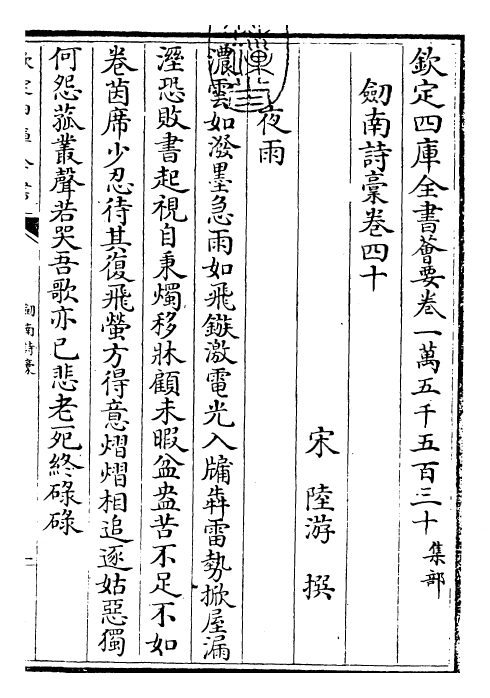 欽定四庫全書薈要卷一萬五千五百三十 集部
劒南詩稾卷四十
宋 陸游 撰
夜雨
濃雲如潑墨急雨如飛鏃激電光入牖犇雷勢掀屋漏
溼恐敗書起視自秉燭移牀顧未暇盆盎苦不足不如
卷茵席少忍待其復飛螢方得意熠熠相追逐姑惡獨
何怨菰叢聲若哭吾歌亦已悲老死終碌碌
劒南詩稾